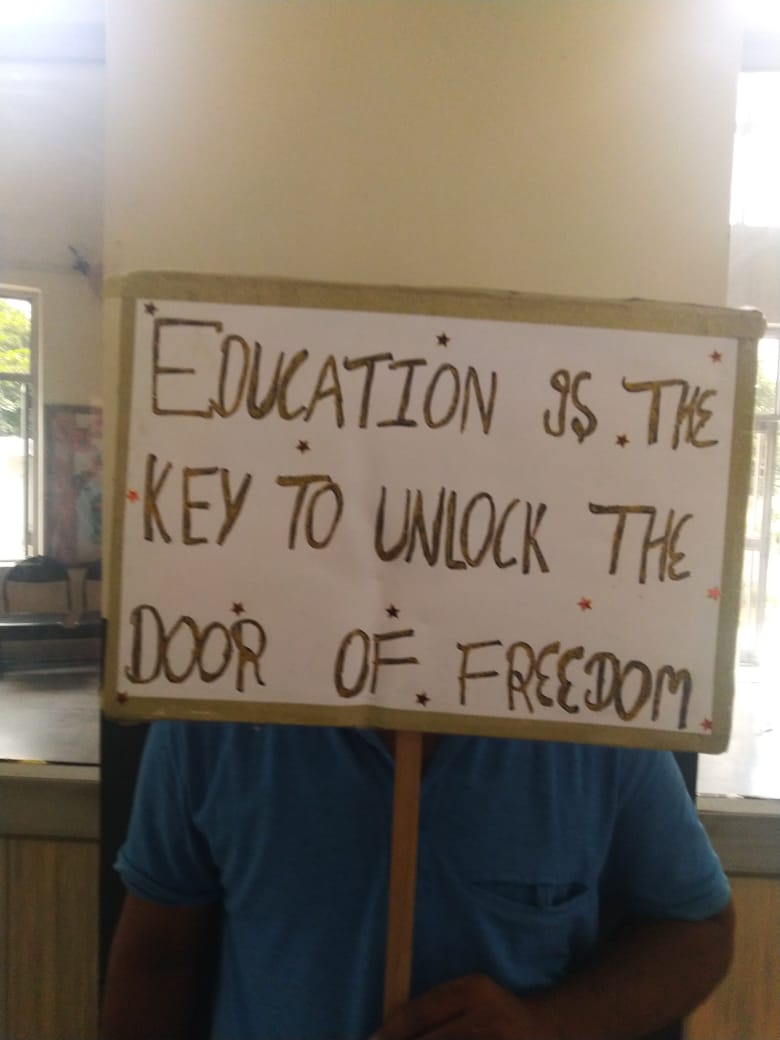 EDUCATION IS THE
KEY TO UNLOCK THE
DOOR OF FREEDOM